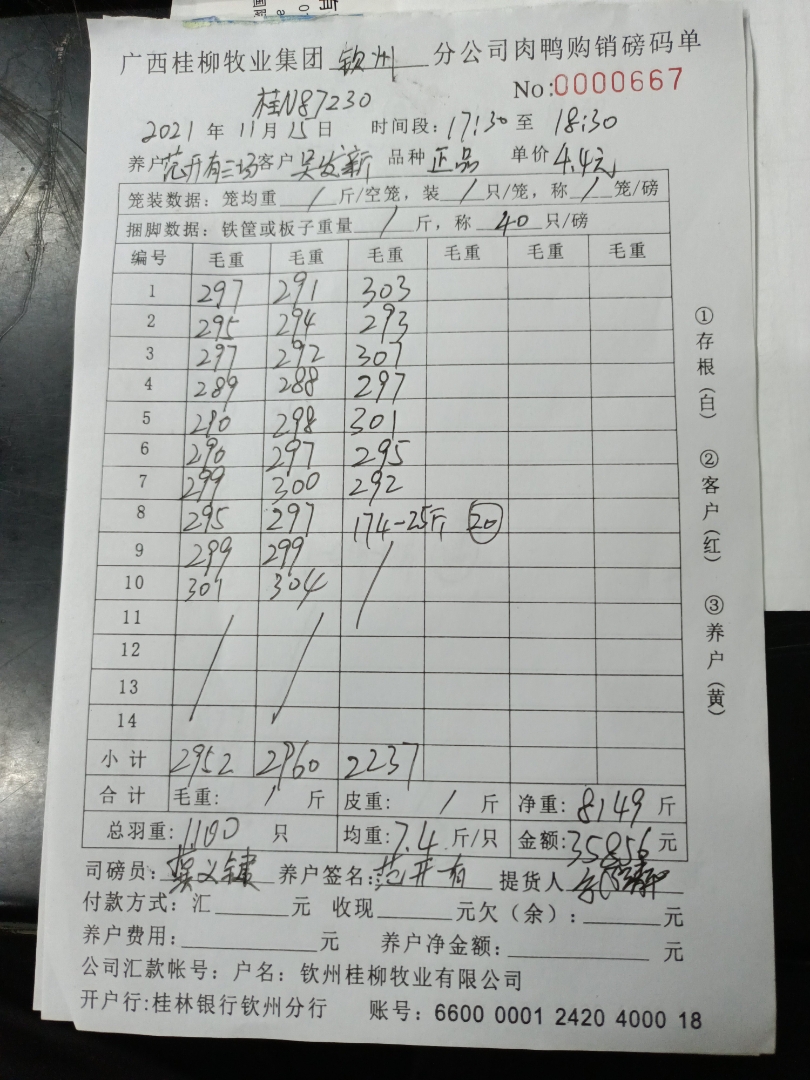 广西桂柳牧业集团 钦州 分公司肉鸭购销磅码单
No:0000667
桂N87230
2021 年 11 月 15 日 时间段: 17:30 至 18:30
养户 范开有三场 客户 吴发新 品种 正品 单价 4.4元
笼装数据: 笼均重 / 斤/空笼, 装 / 只/笼, 称 / 笼/磅
捆脚数据: 铁筐或板子重量 / 斤, 称 40 只/磅
编号 毛重 毛重 毛重 毛重 毛重 毛重
1 297 291 303
2 295 294 293
3 297 292 307
4 289 288 297
5 290 298 301
6 290 297 295
7 299 300 292
8 295 297 174-25斤 20
9 299 299 /
10 301 304
11 / /
12
13
14
小计 2952 2960 2237
合计 毛重: / 斤 皮重: / 斤 净重: 8149 斤
总羽重: 1100 只 均重: 7.4 斤/只 金额: 35856 元
司磅员: 养户签名: 范开有 提货人
付款方式: 汇 元 收现 元欠(余): 元
养户费用: 元 养户净金额: 元
公司汇款帐号: 户名: 钦州桂柳牧业有限公司
开户行:桂林银行钦州分行 账号: 6600 0001 2420 4000 18
①存根(白) ②客户(红) ③养户(黄)